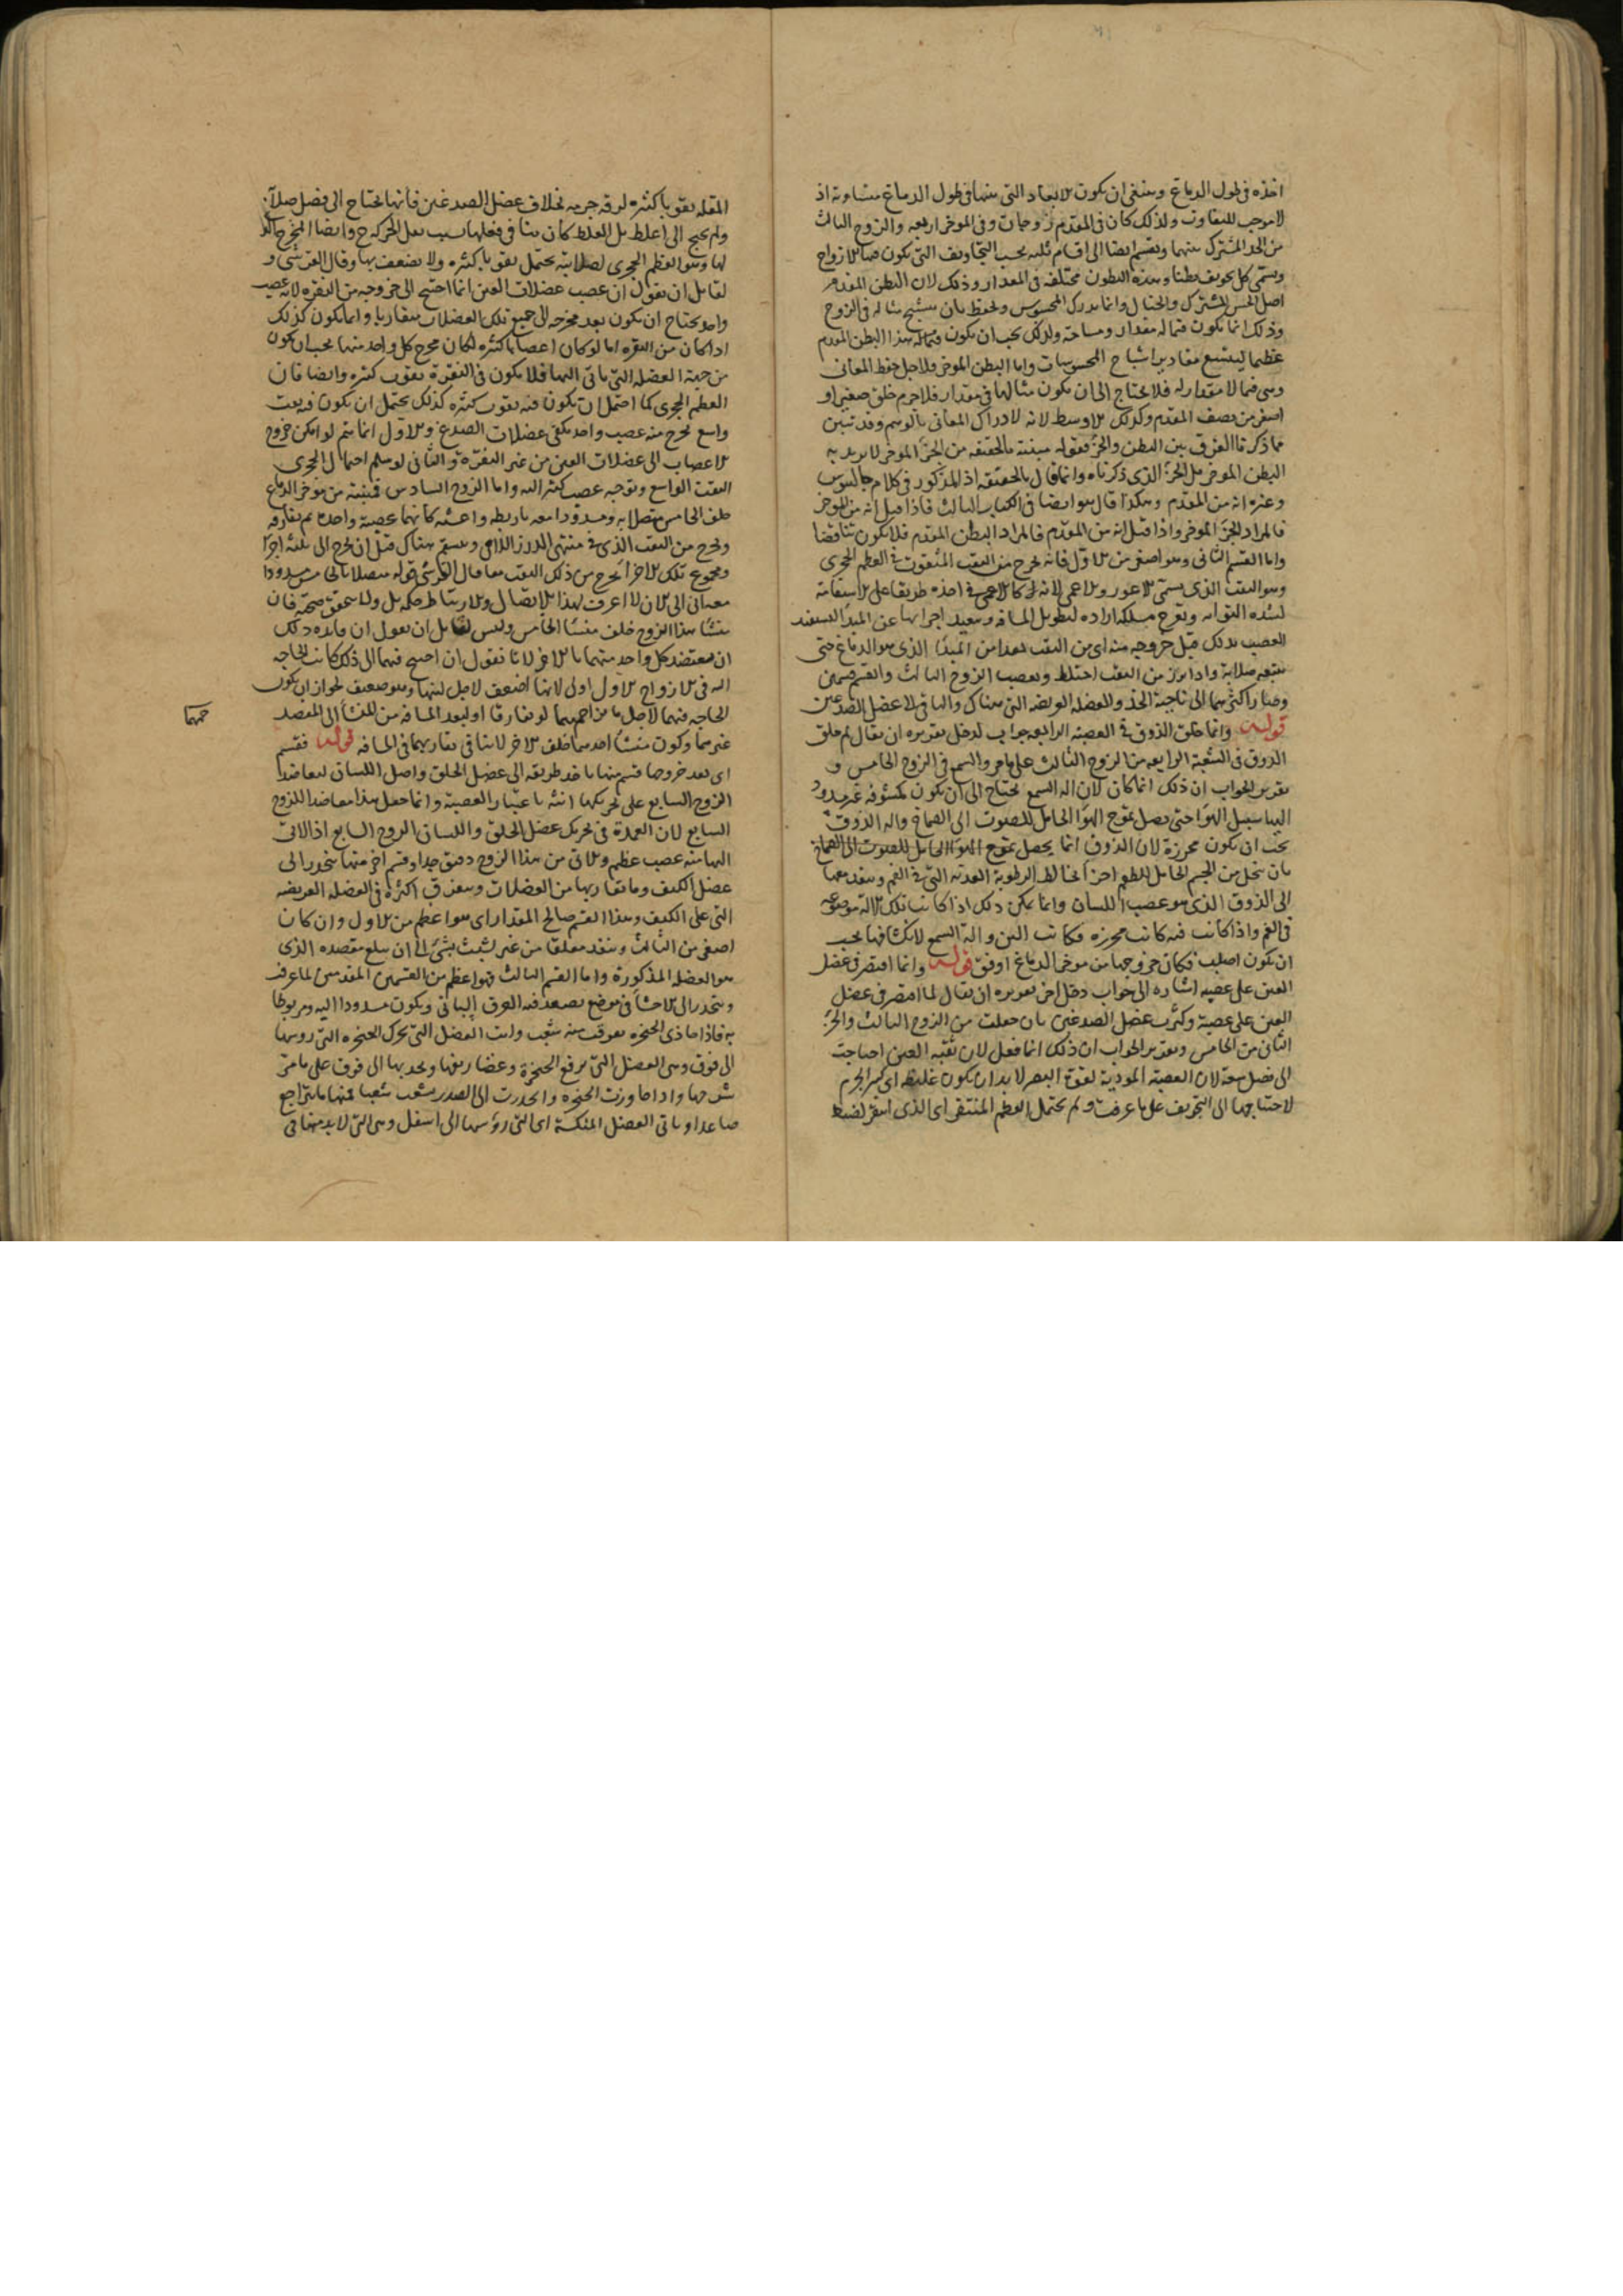 اخذه فى طول الدماغ وينبغى ان يكون الابعاد التى بينها فى طول الدماغ متساوية اذ
لا موجب للتفاوت ولذلك كان فى المقدم زوجان وفى الموخر اربعه والزوج الثالث
من الحد المشترك بينهما وينقسم ايضا الى اقسام ثلثه بحسب التجاويف التى يكون الازواج
ويسمى كل تجويف بطنا وهذه البطون مختلفه فى المقدار وذلك لان البطن المقدم
اصل الحس المشترك والخيال وانما يدرك المحسوس ويحفظ بان يتشبح مثاله فى الروح
وذلك انما يكون فيما له مقدار ومساحة ولذلك يجب ان يكون هذا البطن المقدم
عظيما ليتسع مقادير اشباح المحسوسات واما البطن الموخر فلاجل حفظ المعانى
وهى فيما لا مقدار له فلا يحتاج الى ان يكون مثالها فى مقدار فلا جرم خلق صغيرا و
اصغر من نصف المقدم وكذلك الاوسط لانه لادراك المعانى بالوهم وقد تبين
مما ذكرنا الفرق بين البطن والجزء فقوله منبته بالحقيقه من الجزء الموخر لا يريد به
البطن الموخر بل الجزء الذى ذكرناه وانما قال بالحقيقه اذ المذكور فى كلام جالينوس
وغيره انه من المقدم وهكذا قال هو ايضا فى الكتاب الثالث فاذا قيل انه من الموخر
فالمراد الجزء الموخر واذا قيل انه من المقدم فالمراد البطن المقدم فلا يكون تناقضا
واما القسم الثانى وهو اصغر من الاول فانه يخرج من الثقب المثقوب فى العظم الحجرى
وهو الثقب الذى يسمى الاعور والاعمى لانه كالاعمى فى اخذه طريقا على الاستقامة
لشده التوائه وتعرج مسلكه اراده لتطويل المسافه وتبعيد اخرها عن المبدأ ليستفيد
العصب بذلك قبل خروجه منه اى من الثقب بعدا من المبدأ الذى هو الدماغ حتى
يتبعه صلابة واذا برز من الثقب اختلط وبعصب الزوج الثالث وانقسم قسمين
وصار اكثرهما الى ناحية الخد والعضله العريضه التى هناك والباقى الى عضل الصدغين
قوله وانما خلق الذوق فى العصبه الرابعه جواب لدخل تقريره ان يقال لم خلق
الذوق فى الشعبة الرابعه من الزوج الثالث على ما مر والسمع فى الزوج الخامس و
تقرير الجواب ان ذلك انما كان لان اله السمع يحتاج الى ان يكون مكشوفه غير مسدود
اليها سبيل الهوا حتى يصل تموج الهوا الحامل للصوت الى الصماخ واله الذوق
يجب ان يكون محرزة لان الذوق انما يحصل بتموج الهوا الحامل للصوت الى الصماخ
بان يتحلل من الجسم الحامل للطعم اجزا تخالط الرطوبة العذبه التى فى الفم وينفذ معها
الى الذوق الذى هو عصب اللسان وانما يمكن ذلك اذا كانت تلك الالة موضوعه
فى الفم واذا كانت فيه كانت محرزه فكانت الين والة السمع لانكشافها يجب
ان يكون اصلب فكان خروجها من موخر الدماغ اوفق قوله وانما اقتصر فى عضل
العين على عصبه اشاره الى جواب دخل اخر تقريره ان يقال لما اقتصر فى عضل
العين على عصبة وكثرت عضل الصدغين بان جعلت من الزوج الثالث والجزء
الثانى من الخامس وتقرير الجواب ان ذلك انما فعل لان ثقبه العين احتاجت
الى فضل سعة لان العصبه المودية لقوة البصر لا بد ان يكون غليظه اى كبير الجرم
لاحتياجها الى التجويف على ما عرفت ولم يحتمل العظم المستقر اى الذى استقر لضبط
المقله ثقوبا كثيره لرقه جرمه بخلاف عضل الصدغين فانها تحتاج الى فضل صلابة
ولم يحتج الى اغلظ بل الغلظ كان ينافى فعلها بسبب ثقل الحركة ح وايضا المخرج الذى
لها وهو العظم الحجرى لصلابته يحتمل ثقوبا كثيره ولا يضعف بها وقال القرشى و
لقايل ان يقول ان عصب عضلات العين انما احتيج الى خروجه من النقره لانه عصب
واحد يحتاج ان يكون بعد مخرجه الى جميع تلك العضلات متقاربا وانما يكون كذلك
اذا كان من النقره اما لو كان اعصابا كثيره لكان مخرج كل واحد منها يجب ان يكون
من جهة العضله التى ياتى اليها فلا يكون فى النقرة ثقوب كثيره وايضا فان
العظم الحجرى كما احتمل ان يكون فيه ثقوب كثيره كذلك يحتمل ان يكون فيه ثقب
واسع يخرج منه عصب واحد يكفى عضلات الصدغ والاول انما يتم لو امكن خروج
الاعصاب الى عضلات العين من غير النقرة والثانى لو سلم احتمال الحجرى
الثقب الواسع وتوجه عصب كثير اليه واما الزوج السادس فينبت من موخر الدماغ
خلف الخامس متصلا به ومشدودا معه باربطه واغشيه كانهما عصبة واحدة ثم يفارقه
ويخرج من الثقب الذى فى منتهى الدرز اللامى وينقسم هناك قبل ان يخرج الى ثلثه اجزا
ومجموع تلك الاجزا يخرج من ذلك الثقب معا قال القرشى قوله متصلا بالخامس مشدودا
معه انى الى الان لا اعرف لهذا الاتصال والارتباط حكمه بل ولا تحقق صحته فان
منشا هذا الزوج خلف منشا الخامس وليس لقايل ان يقول ان فايده ذلك
ان يعتضد كل واحد منهما بالاخر لانا نقول ان احتيج فيهما الى ذلك كانت الحاجه
اليه فى الازواج الاول اولى لانها اضعف لاجل لينها وهو ضعيف لجواز ان يكون
الحاجه فيهما لاجل ما يزاحمهما لو تفارقا او لبعد المسافه من المنشأ الى المقصد
غيرهما وكون منشأ احدهما خلف الاخر لا ينافى تقاربهما فى المسافه قوله فقسم
اى بعد خروجها قسم منها ياخذ طريقه الى عضل الحلق واصل اللسان ليعاضد
الزوج السابع على تحريكها انثه باعتبار العصبة وانما جعل هذا معاضدا للزوج
السابع لان العمدة فى تحريك عضل الحلق واللسان الزوج السابع اذ الاتى
اليها منه عصب عظيم والاتى من هذا الزوج دقيق جدا وقسم اخر منها ينحدر الى
عضل الكتف وما يقاربها من العضلات ويتفرق اكثره فى العضله العريضه
التى على الكتف وهذا القسم صالح المقدار اى هو اعظم من الاول وان كان
اصغر من الثالث وينفذ معلقا من غير تشبث بشىء الى ان يبلغ مقصده الذى
هو العضله المذكورة واما القسم الثالث فهو اعظم من القسمين المقدمين لما عرف
وينحدر الى الاحشا فى موضع يصعد فيه العرق السباتى ويكون مشدودا اليه ومربوطا
به فاذا حاذى الحنجره تفرقت منه شعب واتت العضل التى تحرك الحنجره التى روسها
الى فوق وهى العضل التى ترفع الحنجرة وغضاريفها وتجذبها الى فوق على ما مر
شرحها واذا جاوزت الحنجره وانحدرت الى الصدر يشعب شعبا فمنها ما يتراجع
صاعدا وياتى العضل المنكسة اى التى رؤسها الى اسفل وهى التى لا بد منها فى